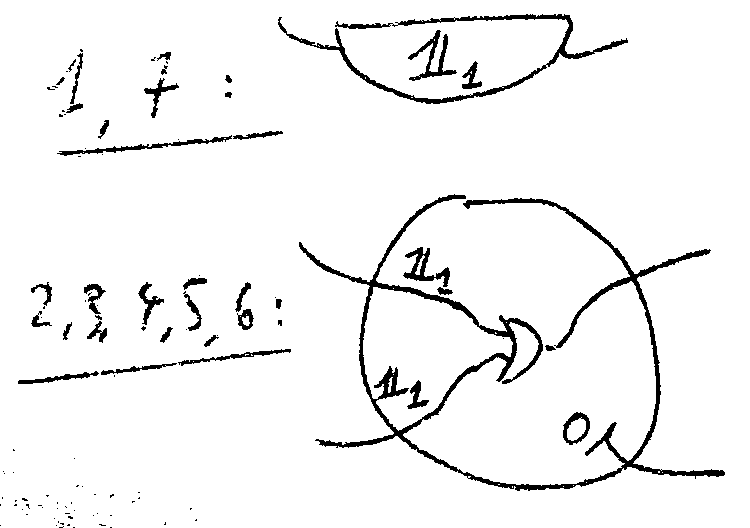 1, 7 :
𝟙₁
2, 3, 4, 5, 6 :
𝟙₁
𝟙₁
0